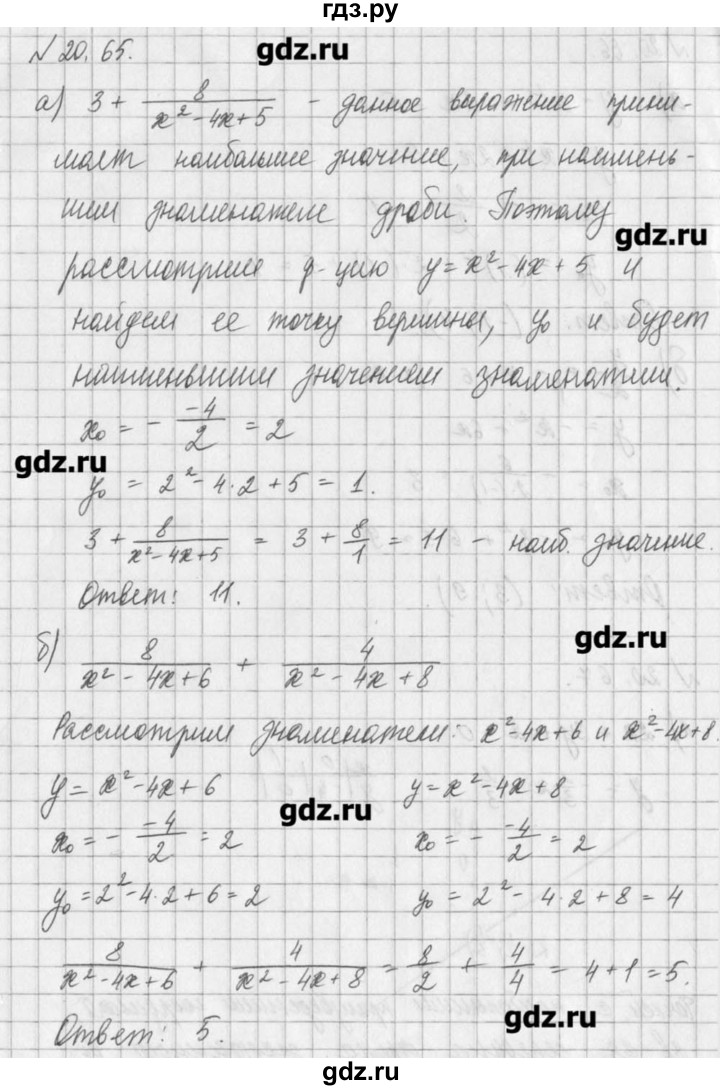 гдз.ру
№ 20.65.
gdz.ru
а) 3 + 8/(x² - 4x + 5) - данное выражение прини-
мает наибольшее значение, при наимень-
шем знаменателе дроби. Поэтому
gdz.ru
рассмотрим ф-цию y = x² - 4x + 5 и
найдем ее точку вершины, y₀ и будет
наименьшим значением знаменателя.
x₀ = - -4/2 = 2
gdz.ru
y₀ = 2² - 4·2 + 5 = 1.
3 + 8/(x² - 4x + 5) = 3 + 8/1 = 11 - наиб. значение.
Ответ: 11.
gdz.ru
б) 8/(x² - 4x + 6) + 4/(x² - 4x + 8)
Рассмотрим знаменатели: x² - 4x + 6 и x² - 4x + 8.
y = x² - 4x + 6 y = x² - 4x + 8
gdz.ru
x₀ = - -4/2 = 2 x₀ = - -4/2 = 2
y₀ = 2² - 4·2 + 6 = 2 y₀ = 2² - 4·2 + 8 = 4
8/(x² - 4x + 6) + 4/(x² - 4x + 8) = 8/2 + 4/4 = 4 + 1 = 5.
gdz.ru
Ответ: 5.
gdz.ru